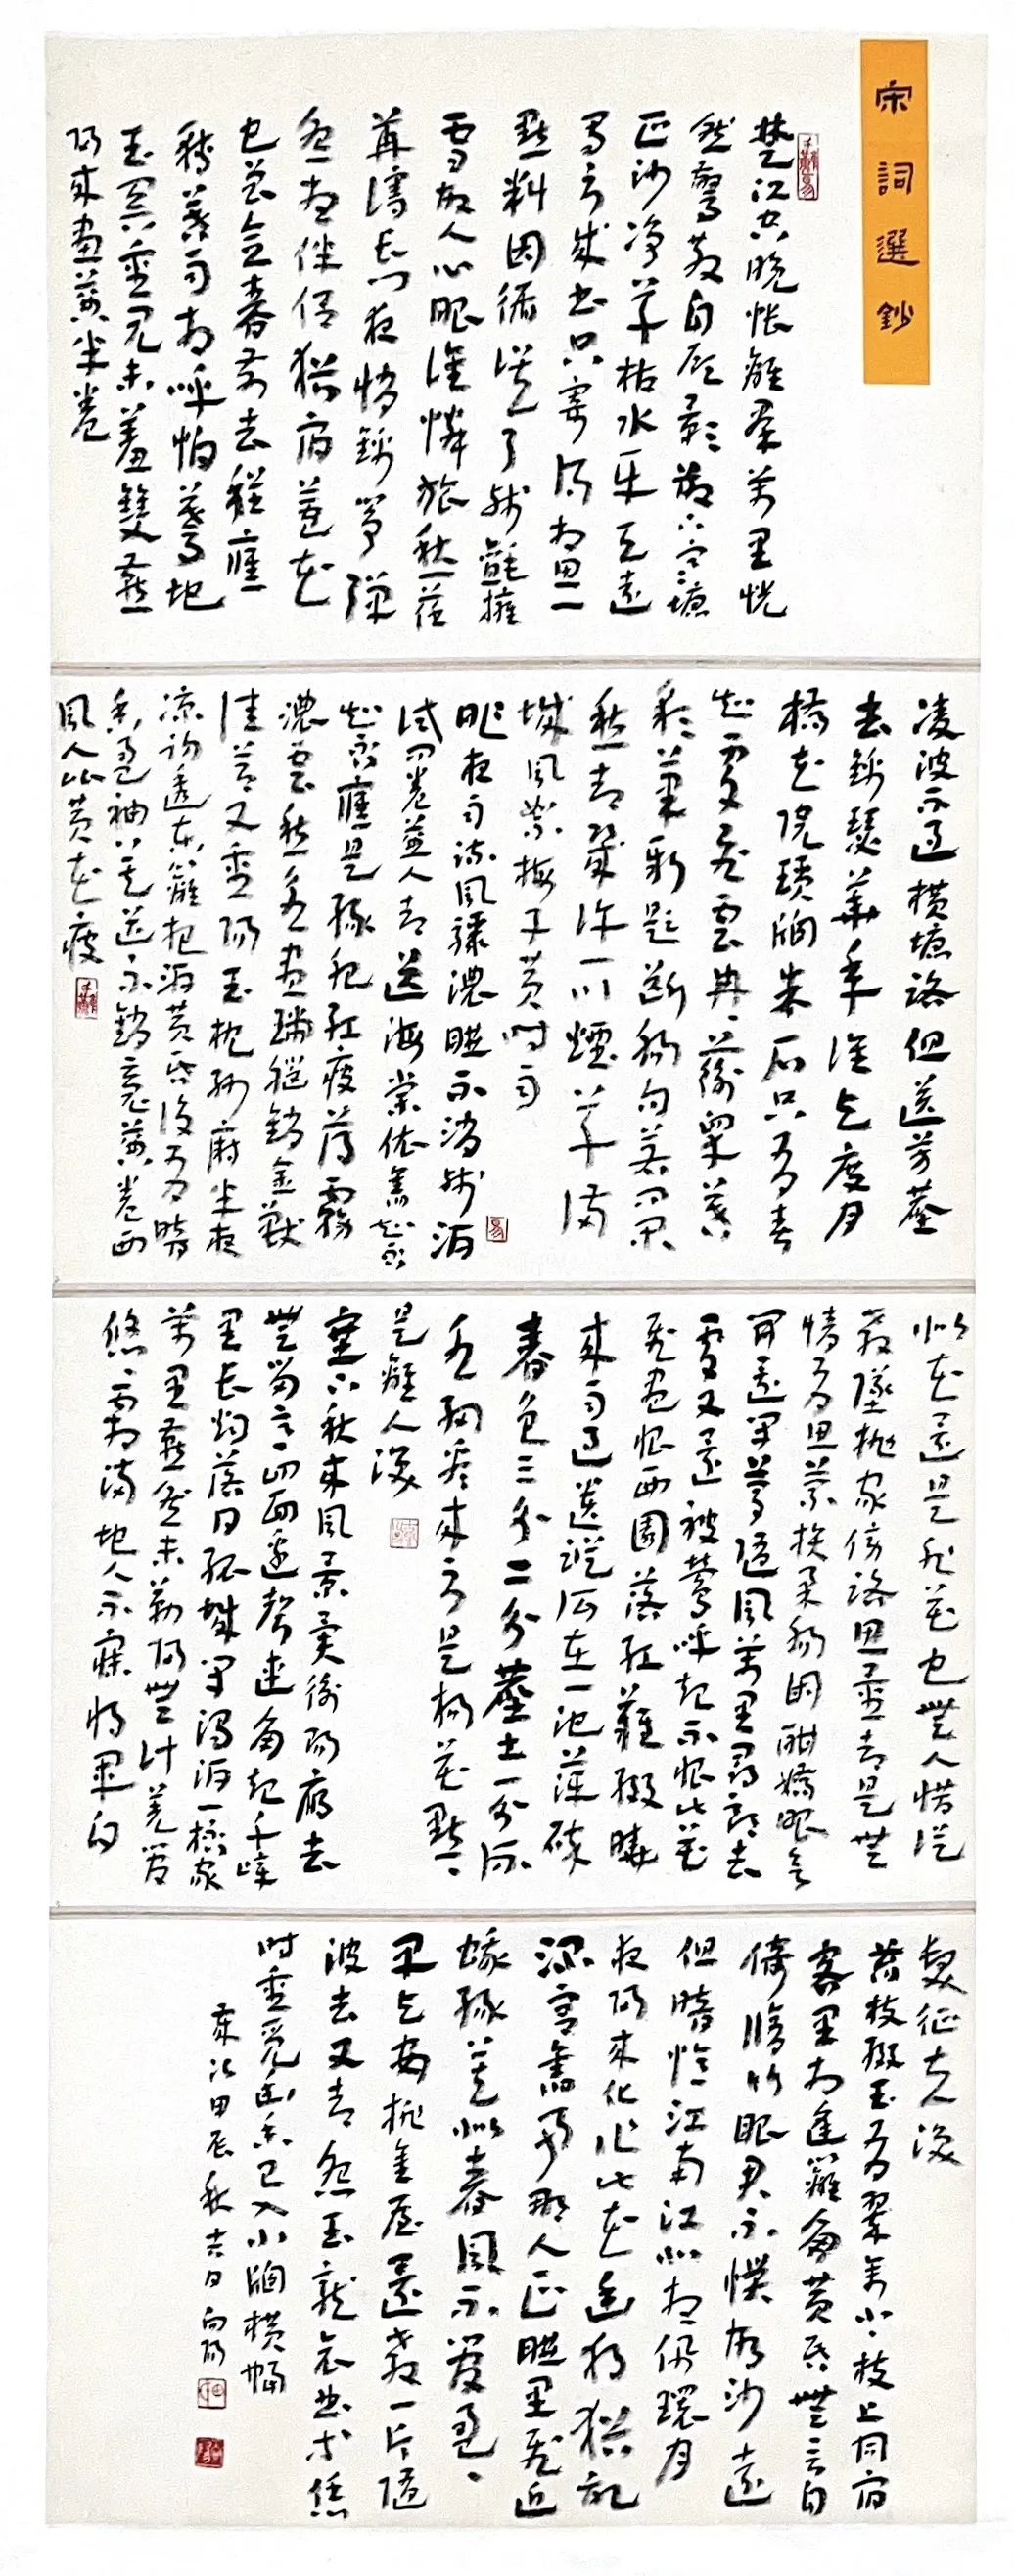 宋詞選鈔
楚江空晚悵離群萬里恍
然驚散自顧影欲下寒塘
正沙净草枯水平天遠
寫不成書只寄得相思一
點料因循誤了殘氈擁
雪故人心眼誰憐旅愁荏
苒謾長門夜悄錦箏彈
怨想伴侣猶宿蘆花
也曾念春前去程應
轉暮雨相呼怕驀地
玉關重見未羞雙燕
歸來畫簾半卷
凌波不過橫塘路但送芳塵
去錦瑟華年誰與度月
橋花院瑣窗朱户只有春
知處飛雲冉冉蘅皋暮
彩筆新題斷腸句若問閑
愁都幾許一川煙草滿
城風絮梅子黃時雨
昨夜雨疏風驟濃睡不消殘酒
試問卷簾人却道海棠依舊知否
知否應是綠肥紅瘦薄霧
濃雲愁永晝瑞腦銷金獸
佳節又重陽玉枕紗廚半夜
凉初透東籬把酒黃昏後有暗
香盈袖莫道不銷魂簾卷西
風人比黃花瘦
似花還是非花也無人惜從
教墜拋家傍路思量却是無
情有思縈損柔腸困酣嬌眼欲
開還閉夢隨風萬里尋郎去
處又還被鶯呼起不恨此花
飛盡恨西園落紅難綴曉
來雨過遺蹤何在一池萍碎
春色三分二分塵土一分流
水細看來不是楊花點點
是離人淚
塞下秋來風景異衡陽雁去
無留意四面邊聲連角起千嶂
里長煙落日孤城閉濁酒一杯家
萬里燕然未勒歸無計羌管
悠悠霜滿地人不寐將軍白
髮征夫淚
苔枝綴玉有翠禽小小枝上同宿
客里相逢籬角黃昏無言自
倚修竹昭君不慣胡沙遠
但暗憶江南江北想佩環月
夜歸來化作此花幽獨猶記
深宮舊事那人正睡里飛近
蛾綠莫似春風不管盈盈
早與安排金屋還教一片隨
波去又却怨玉龍哀曲等恁
時重覓幽香已入小窗橫幅
歲次甲辰秋吉日向陽